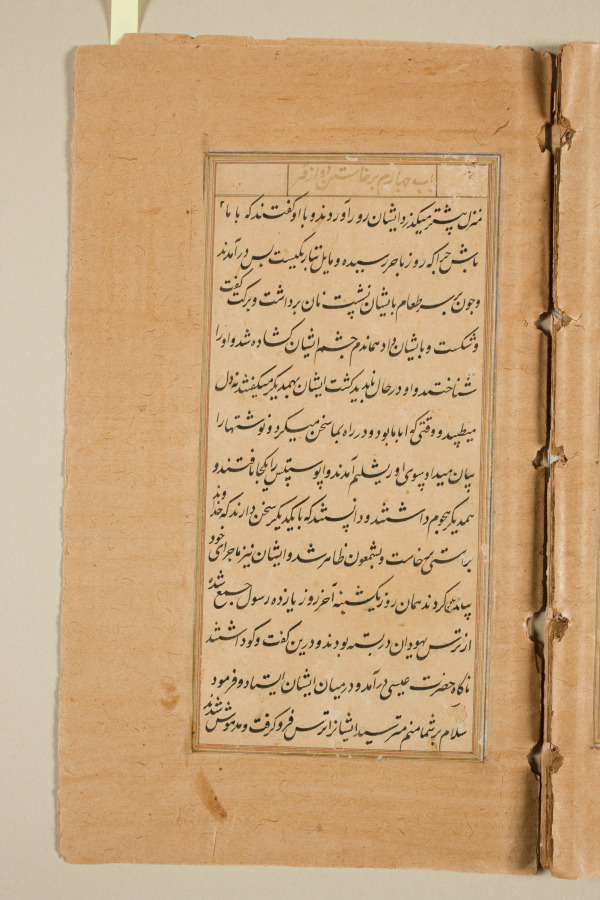 باب چهارم برخاستن او از قبر
منزل پیشتر میکذرد ایشان رو راوردند و با او کفتند که با ما
باش چرا که روز باخر رسیده و مایل بتاریکیست پس درآمدند
و چون بر سر طعام بایشان نشست نان برداشت و برکت کفت
و شکست و بایشان داد هماندم چشم ایشان کشاده شد و او را
شناختند و او در حال ناپدید کشت ایشان بهمدیکر میکفتند نه دل
میطپید و وقتی که او با ما بود و در راه بما سخن میکرد و نوشتهارا
بیان میداد بسوی اورشلیم آمدند و اپوستلس را یکجا یافتند و
همدیکر هجوم داشتند و دانستند که با یکدیکر سخن دارند که خداوند
براستی برخاست و بشمعون ظاهر شد و ایشان نیز ماجرای خود
پیاده کردند همان روز یکشنبه آخر روز یازده رسول جمع شده
از ترس یهودان در بسته بودند و درین کفت و کو داشتند
ناکاه حضرت عیسی درآمد و در میان ایشان ایستاد و فرمود
سلام بر شما منم مترسید ایشانرا ترس فرو کرفت و مدهوش شدند